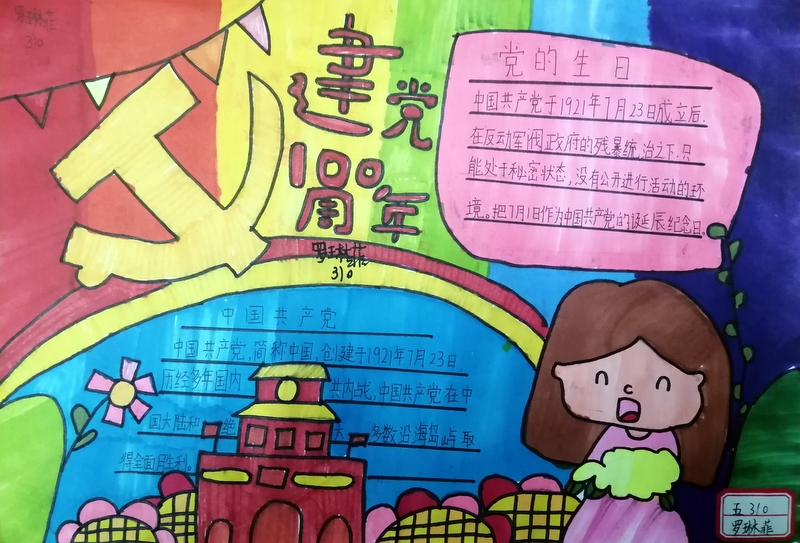 罗琳菲
310
建党
100
周年
罗琳菲
310
党的生日
中国共产党于1921年7月23日成立后.
在反动军阀政府的残暴统治之下.只
能处于秘密状态,没有公开进行活动的环
境。把7月1日作为中国共产党的诞辰纪念日。
中国共产党
中国共产党,简称中国,创建于1921年7月23日
历经多年国内 共内战,中国共产党在中
国大陆和 绝 大 多数沿海岛屿取
得全面胜利。
五310
罗琳菲